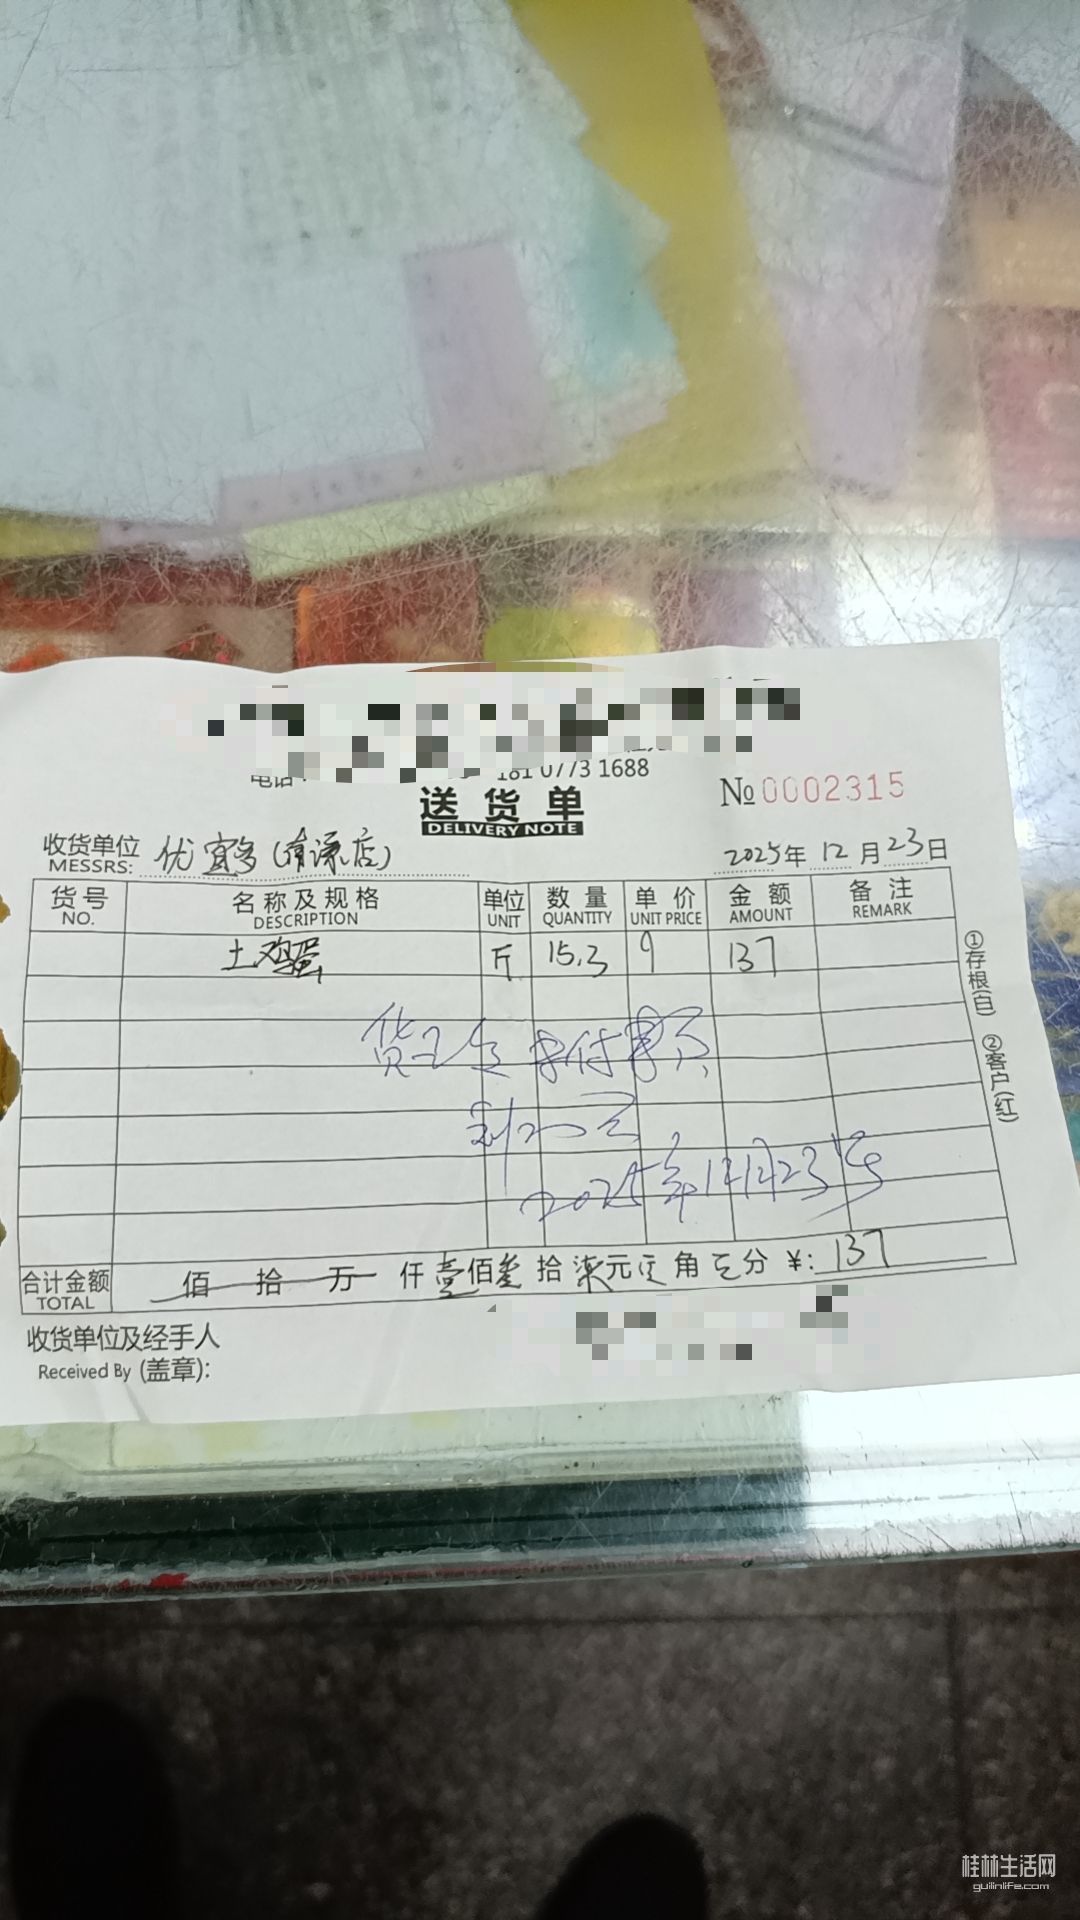 181 0773 1688
送货单
DELIVERY NOTE
№ 0002315
收货单位
MESSRS: 优宜多(清源店)
2025年 12月 23日
货号 名称及规格 单位 数量 单价 金额 备注
NO. DESCRIPTION UNIT QUANTITY UNIT PRICE AMOUNT REMARK
土鸡蛋 斤 15.3 9 137
①存根(白) ②客户(红)
货已
2025年12月23号
合计金额 佰 拾 万 仟 壹佰叁拾柒元 角 分 ¥: 137
TOTAL
收货单位及经手人
Received By (盖章):
桂林生活网
guilinlife.com